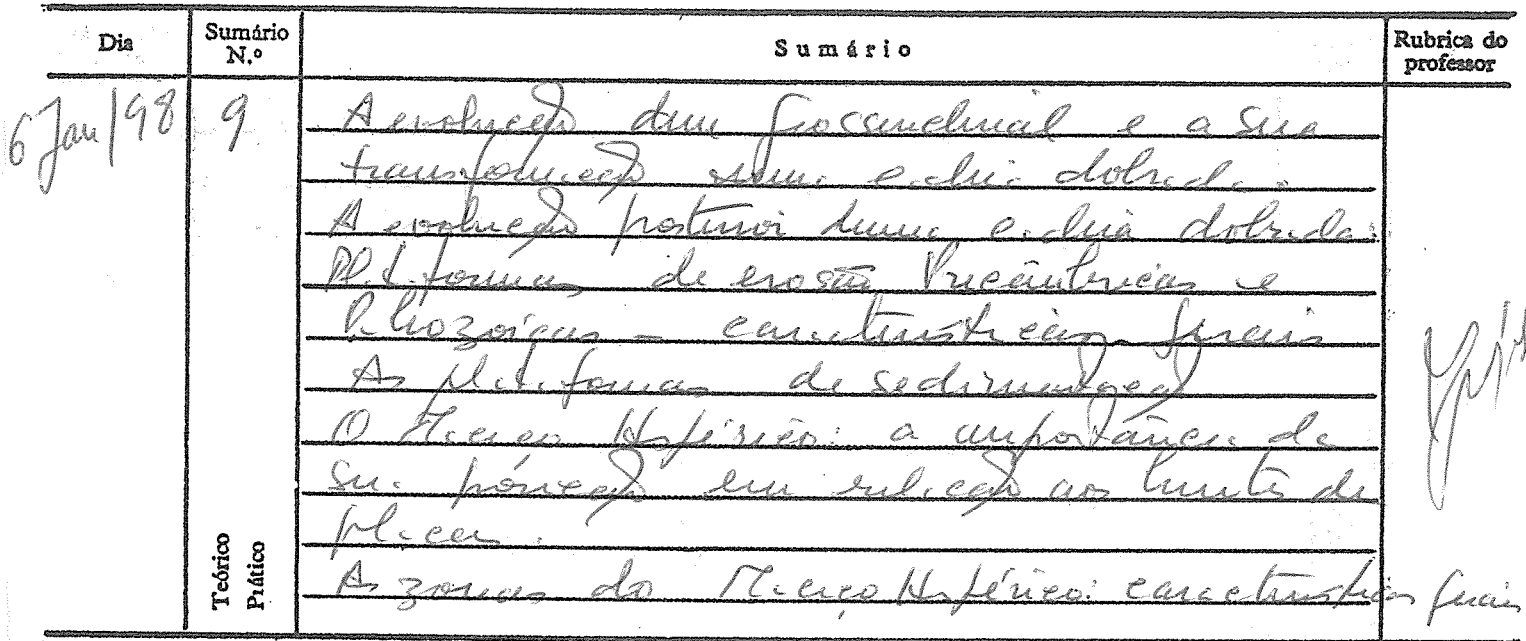 Dia
Sumário N.º
Sumário
Rubrica do professor
6 Jan/98
9
A evolução dum geossinclinal e a sua
transformação numa cadeia dobrada.
A evolução posterior duma cadeia dobrada.
Plataformas de erosão Precâmbricas e
Paleozoicas - características gerais
As plataformas de sedimentação
O Maciço Hespérico: a importância da
sua posição em relação aos limites de
placas.
As zonas do Maciço Hespérico: características gerais
Teórico
Prático